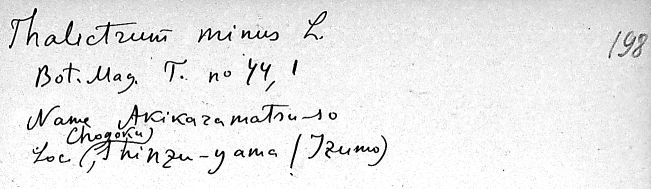 Thalictrum minus L.
198
Bot. Mag. T. no 44, 1
Name Akikaramatsu-so
(Chogoku)
Loc (, Shinzu-yama (Izumo)